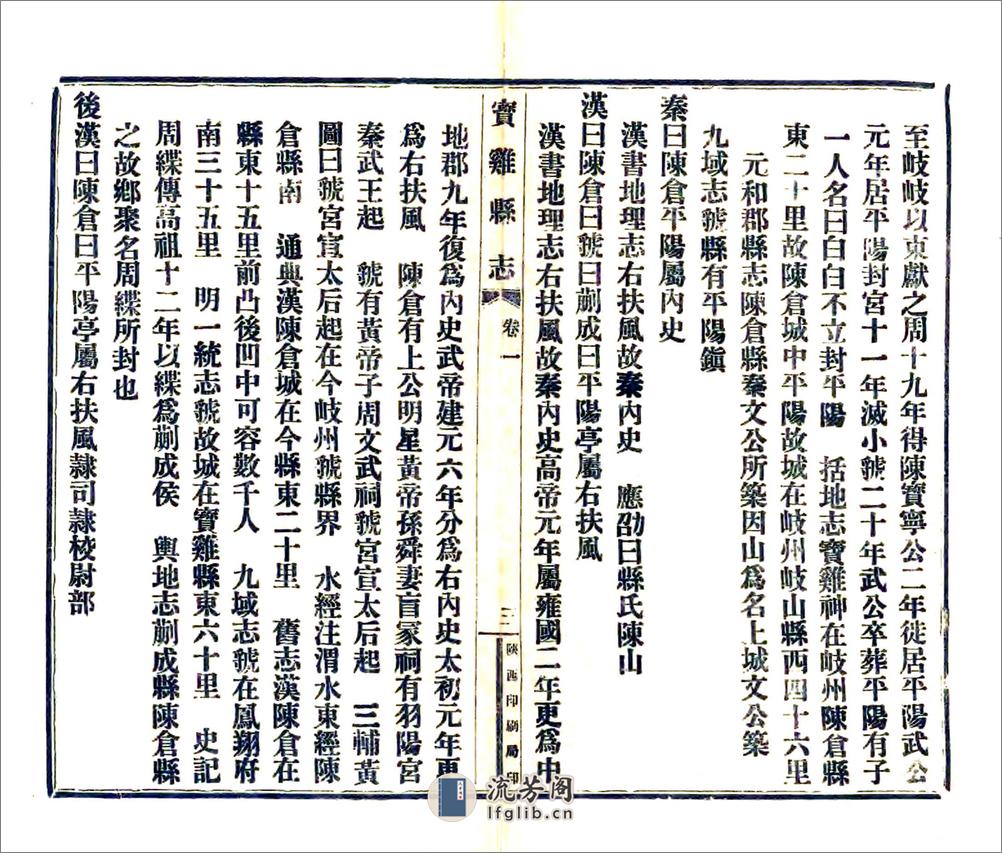 至岐岐以東獻之周十九年得陳寶寧公二年徙居平陽武公
元年居平陽封宮十一年滅小虢二十年武公卒葬平陽有子
一人名曰白白不立封平陽　括地志寶雞神在岐州陳倉縣
東二十里故陳倉城中平陽故城在岐州岐山縣西四十六里
元和郡縣志陳倉縣秦文公所築因山爲名上城文公築
九域志虢縣有平陽鎭
秦曰陳倉平陽屬內史
漢書地理志右扶風故秦內史　應劭曰縣氏陳山
漢曰陳倉曰虢曰蒯成曰平陽亭屬右扶風
漢書地理志右扶風故秦內史高帝元年屬雍國二年更爲中
寶雞縣志
卷一
三
陝西印刷局印
地郡九年復爲內史武帝建元六年分爲右內史太初元年更
爲右扶風　陳倉有上公明星黃帝孫舜妻盲冢祠有羽陽宮
秦武王起　虢有黃帝子周文武祠虢宮宣太后起　三輔黃
圖曰虢宮宣太后起在今岐州虢縣界　水經注渭水東經陳
倉縣南　通典漢陳倉城在今縣東二十里　舊志漢陳倉在
縣東十五里前凸後凹中可容數千人　九域志虢在鳳翔府
南三十五里　明一統志虢故城在寶雞縣東六十里　史記
周緤傳高祖十二年以緤爲蒯成侯　輿地志蒯成縣陳倉縣
之故鄉聚名周緤所封也
後漢曰陳倉曰平陽亭屬右扶風隸司隸校尉部
流芳閣
lfglib.cn